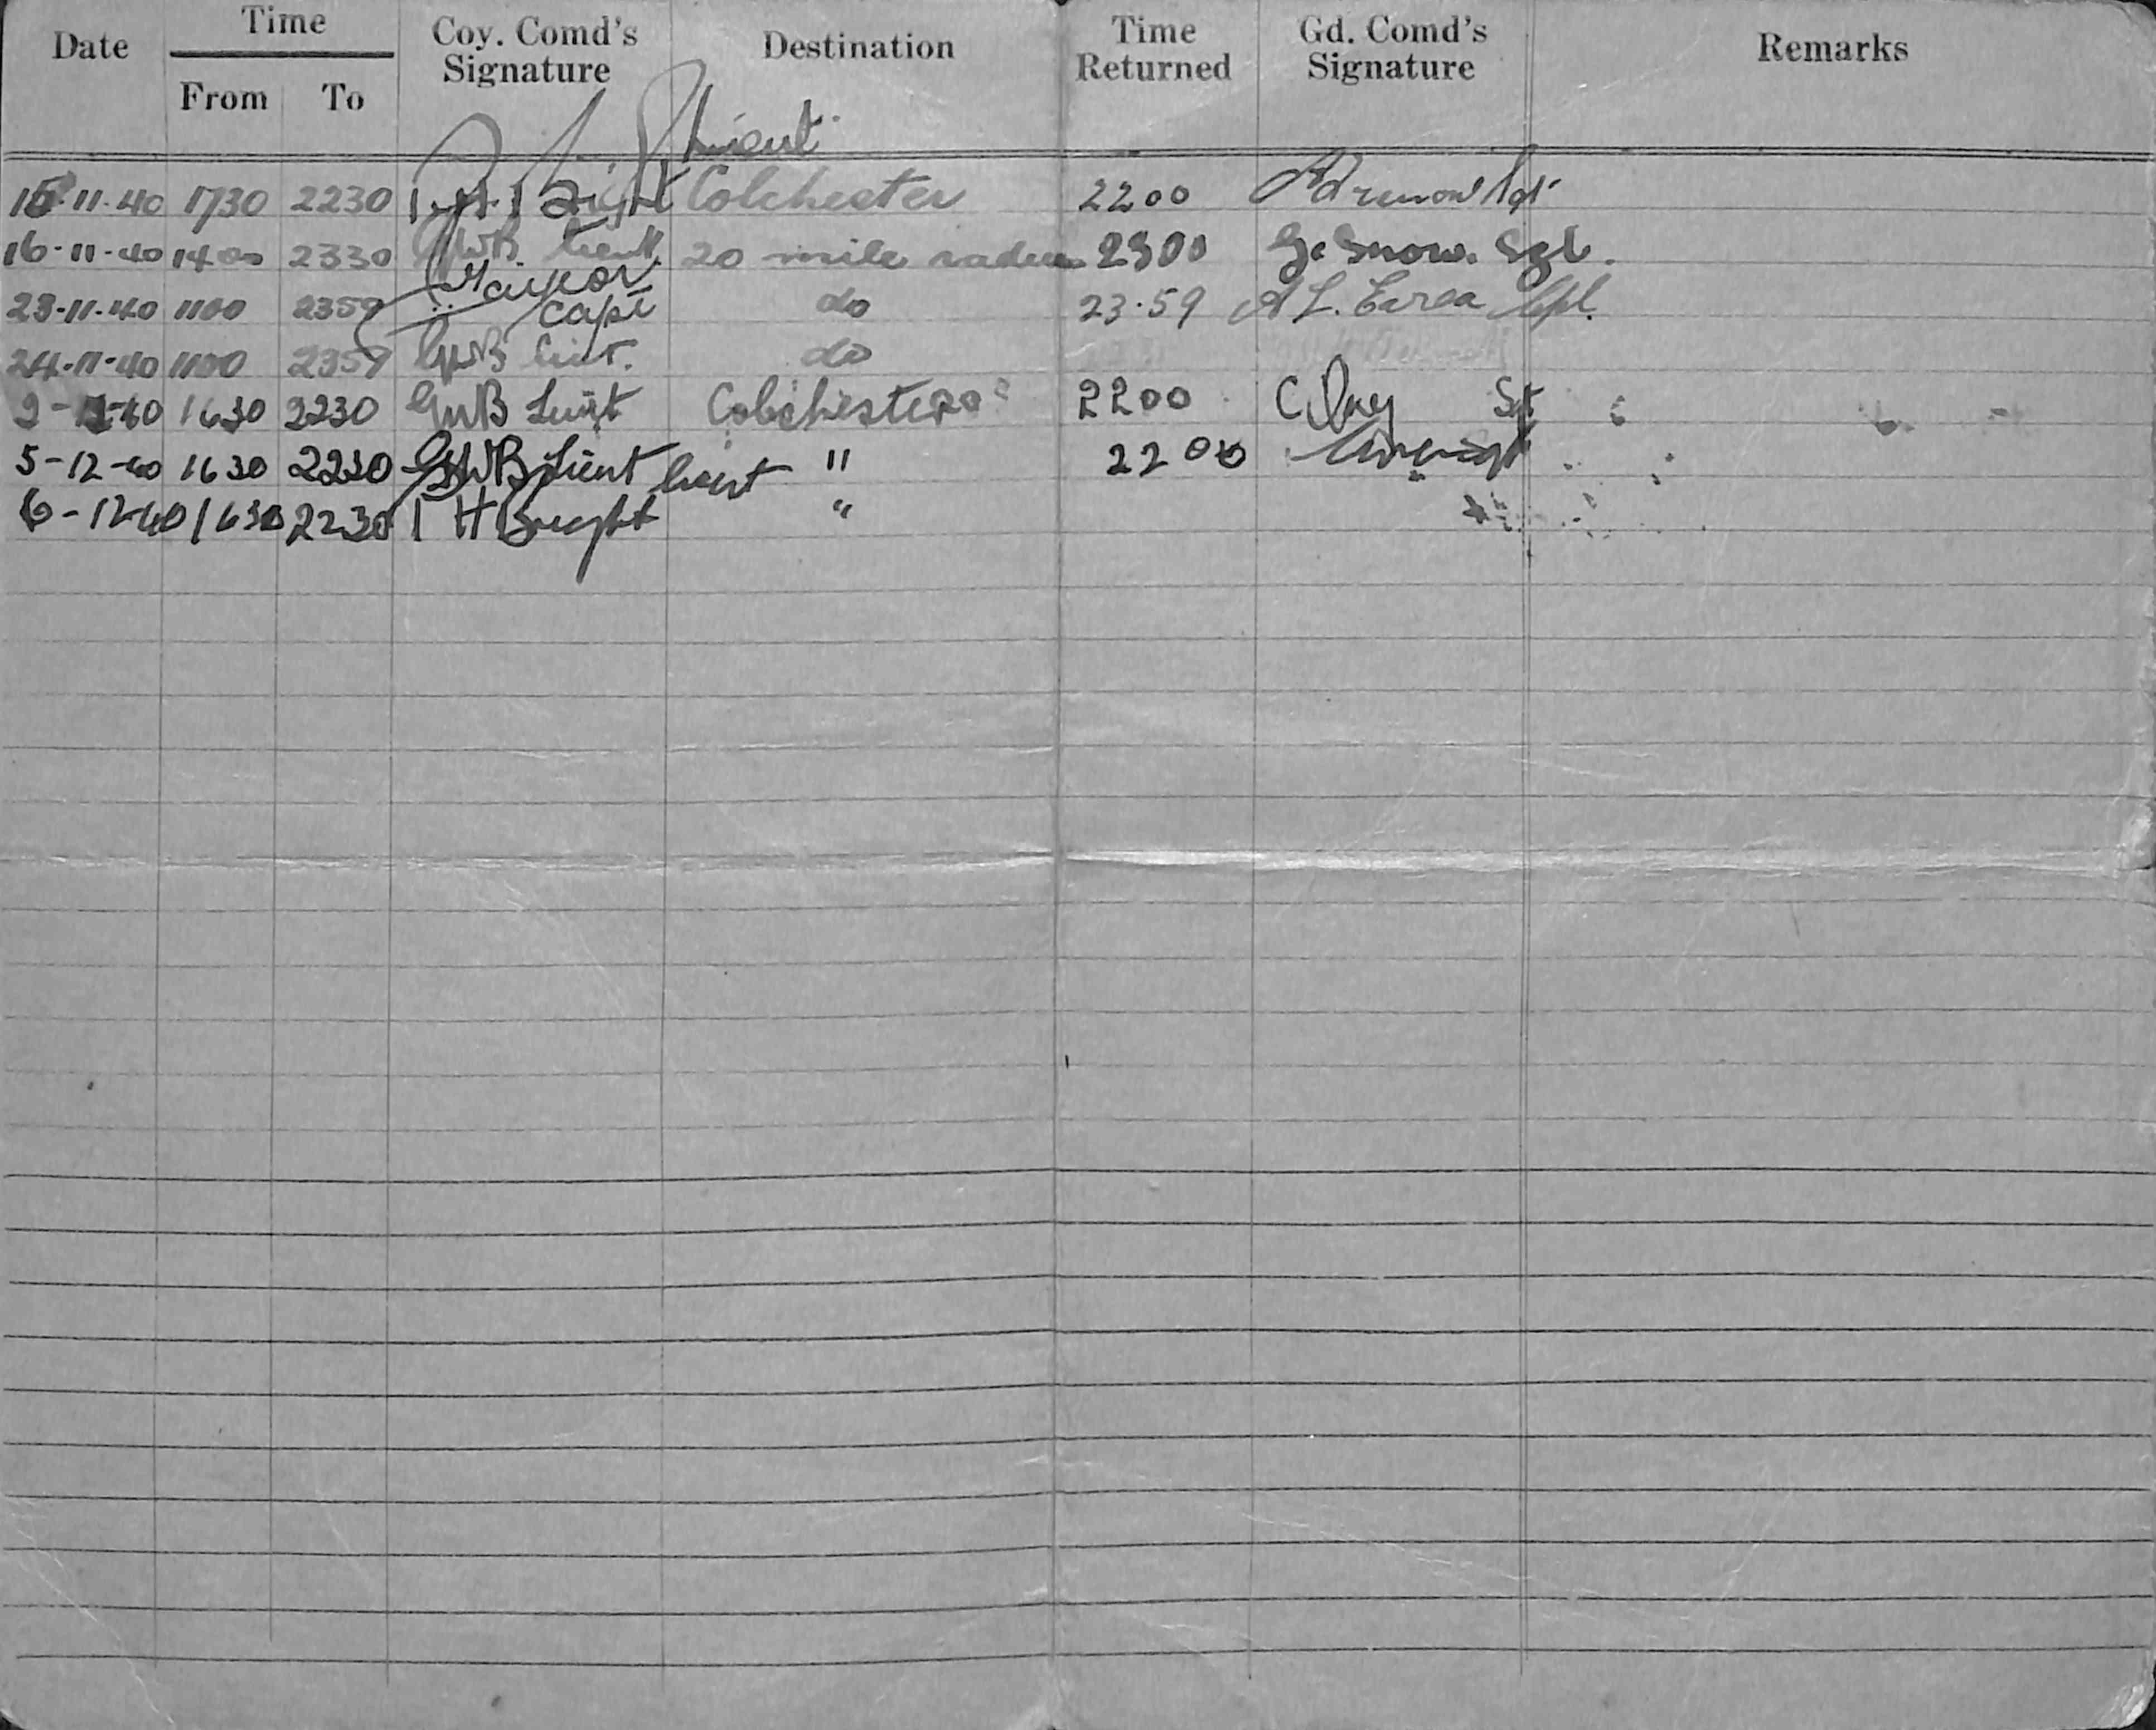 Date Time Coy. Comd's Destination Time Gd. Comd's Remarks
From To Signature Returned Signature
11-40 1730 2230 Colchester 2200
16-11-40 1400 2330 GWB. Lieut. 20 mile radius 2300 G. Snow. Sgt.
23-11-40 1100 2359 Capt do 23.59 A L. Cpl.
24-11-40 1100 2359 GWB Lieut. do
1630 2230 GWB Lieut Colchester 2200 Sgt
5-12-40 1630 2230 GWB Lieut " 2200
6-12-40 1630 2230 H Bright Lieut "